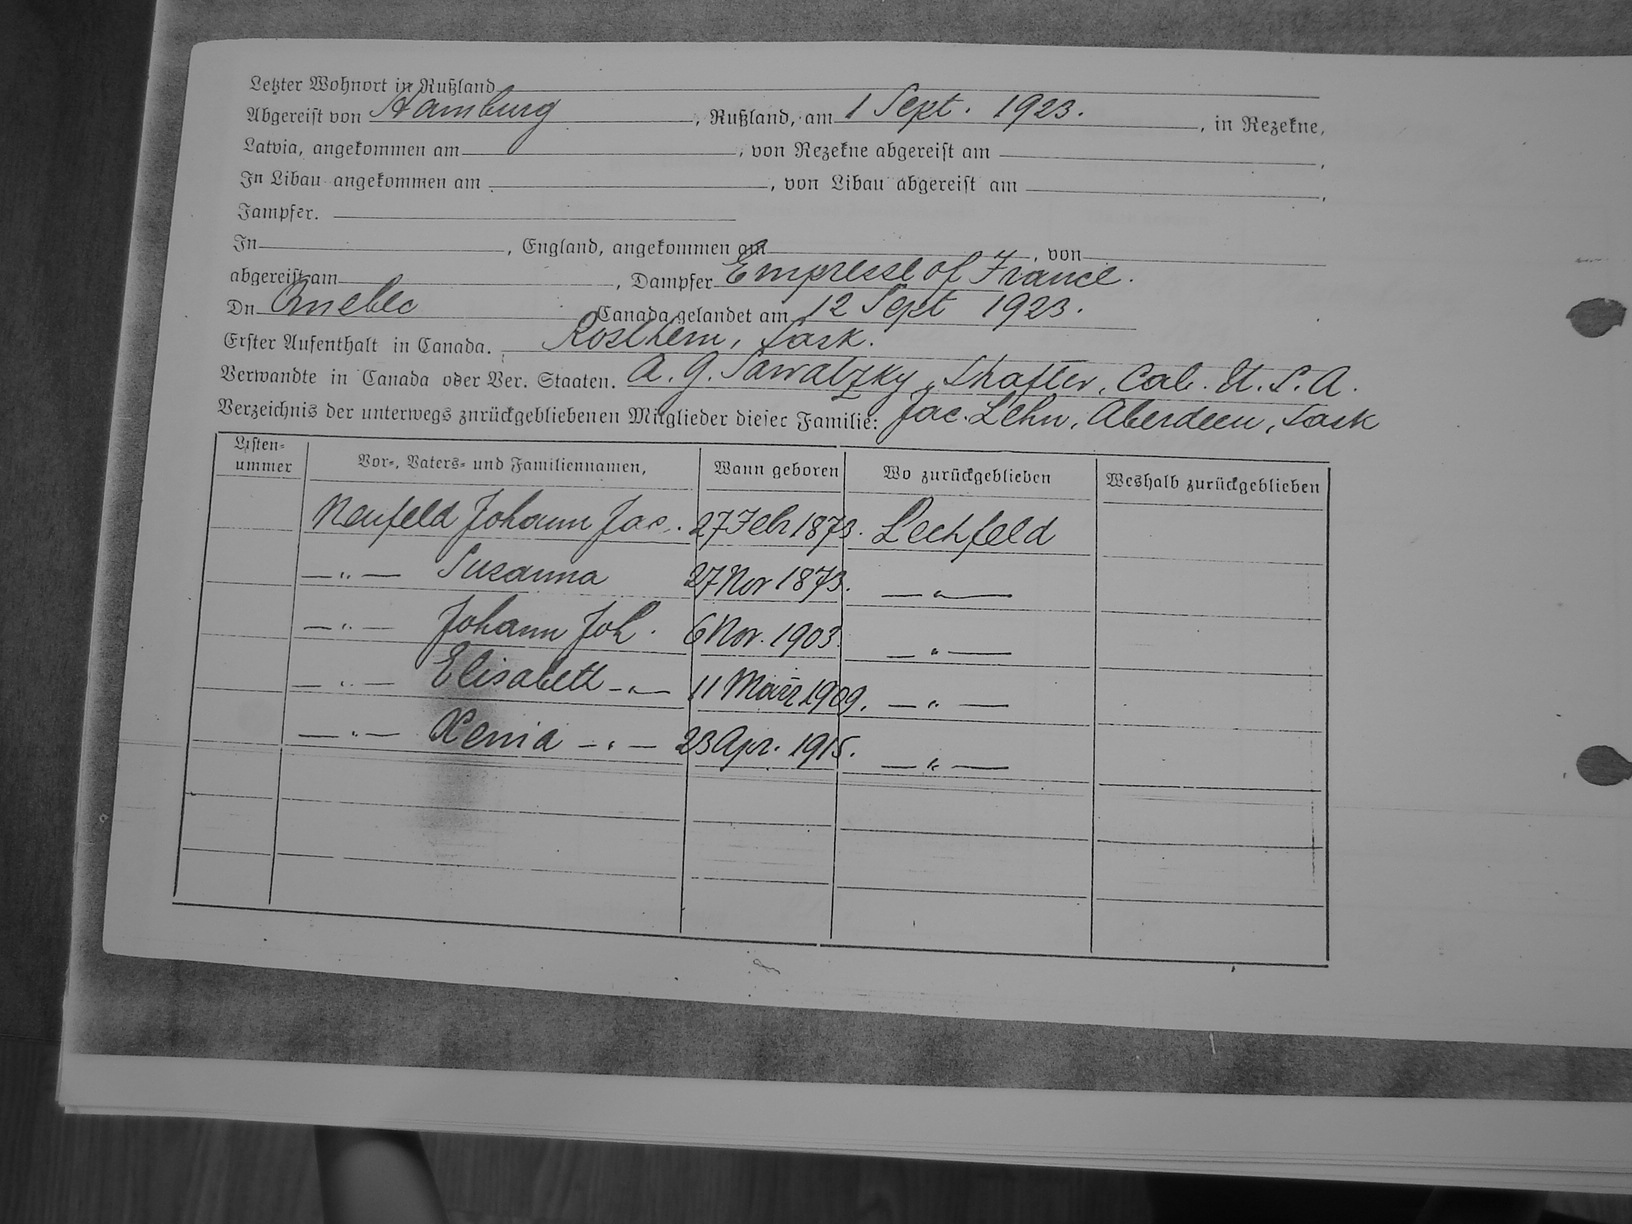 Letzter Wohnort in Rußland
Abgereist von Hamburg, Rußland, am 1 Sept. 1923., in Rezekne,
Latvia, angekommen am, von Rezekne abgereist am,
In Libau angekommen am, von Libau abgereist am,
Jampfer.
In, England, angekommen am, von
abgereist am, Dampfer Empresse of France.
Dn Quebec Canada gelandet am 12 Sept 1923.
Erster Aufenthalt in Canada. Rosthern, Sask.
Verwandte in Canada oder Ver. Staaten. A. G. Sawatzky, Shafter, Cal. U. S. A.
Verzeichnis der unterwegs zurückgebliebenen Mitglieder dieser Familie: Jac. Lehn, Aberdeen, Sask
Listen-
ummer Vor-, Vaters- und Familiennamen, Wann geboren Wo zurückgeblieben Weshalb zurückgeblieben
Neufeld Johann Jac. 27 Feb 1873. Lechfeld
—"— Susanna 27 Nov 1873. —"—
—"— Johann Joh. 6 Nov. 1903. —"—
—"— Elisabeth —"— 11 März 1909. —"—
—"— Xenia —"— 23 Apr. 1915. —"—